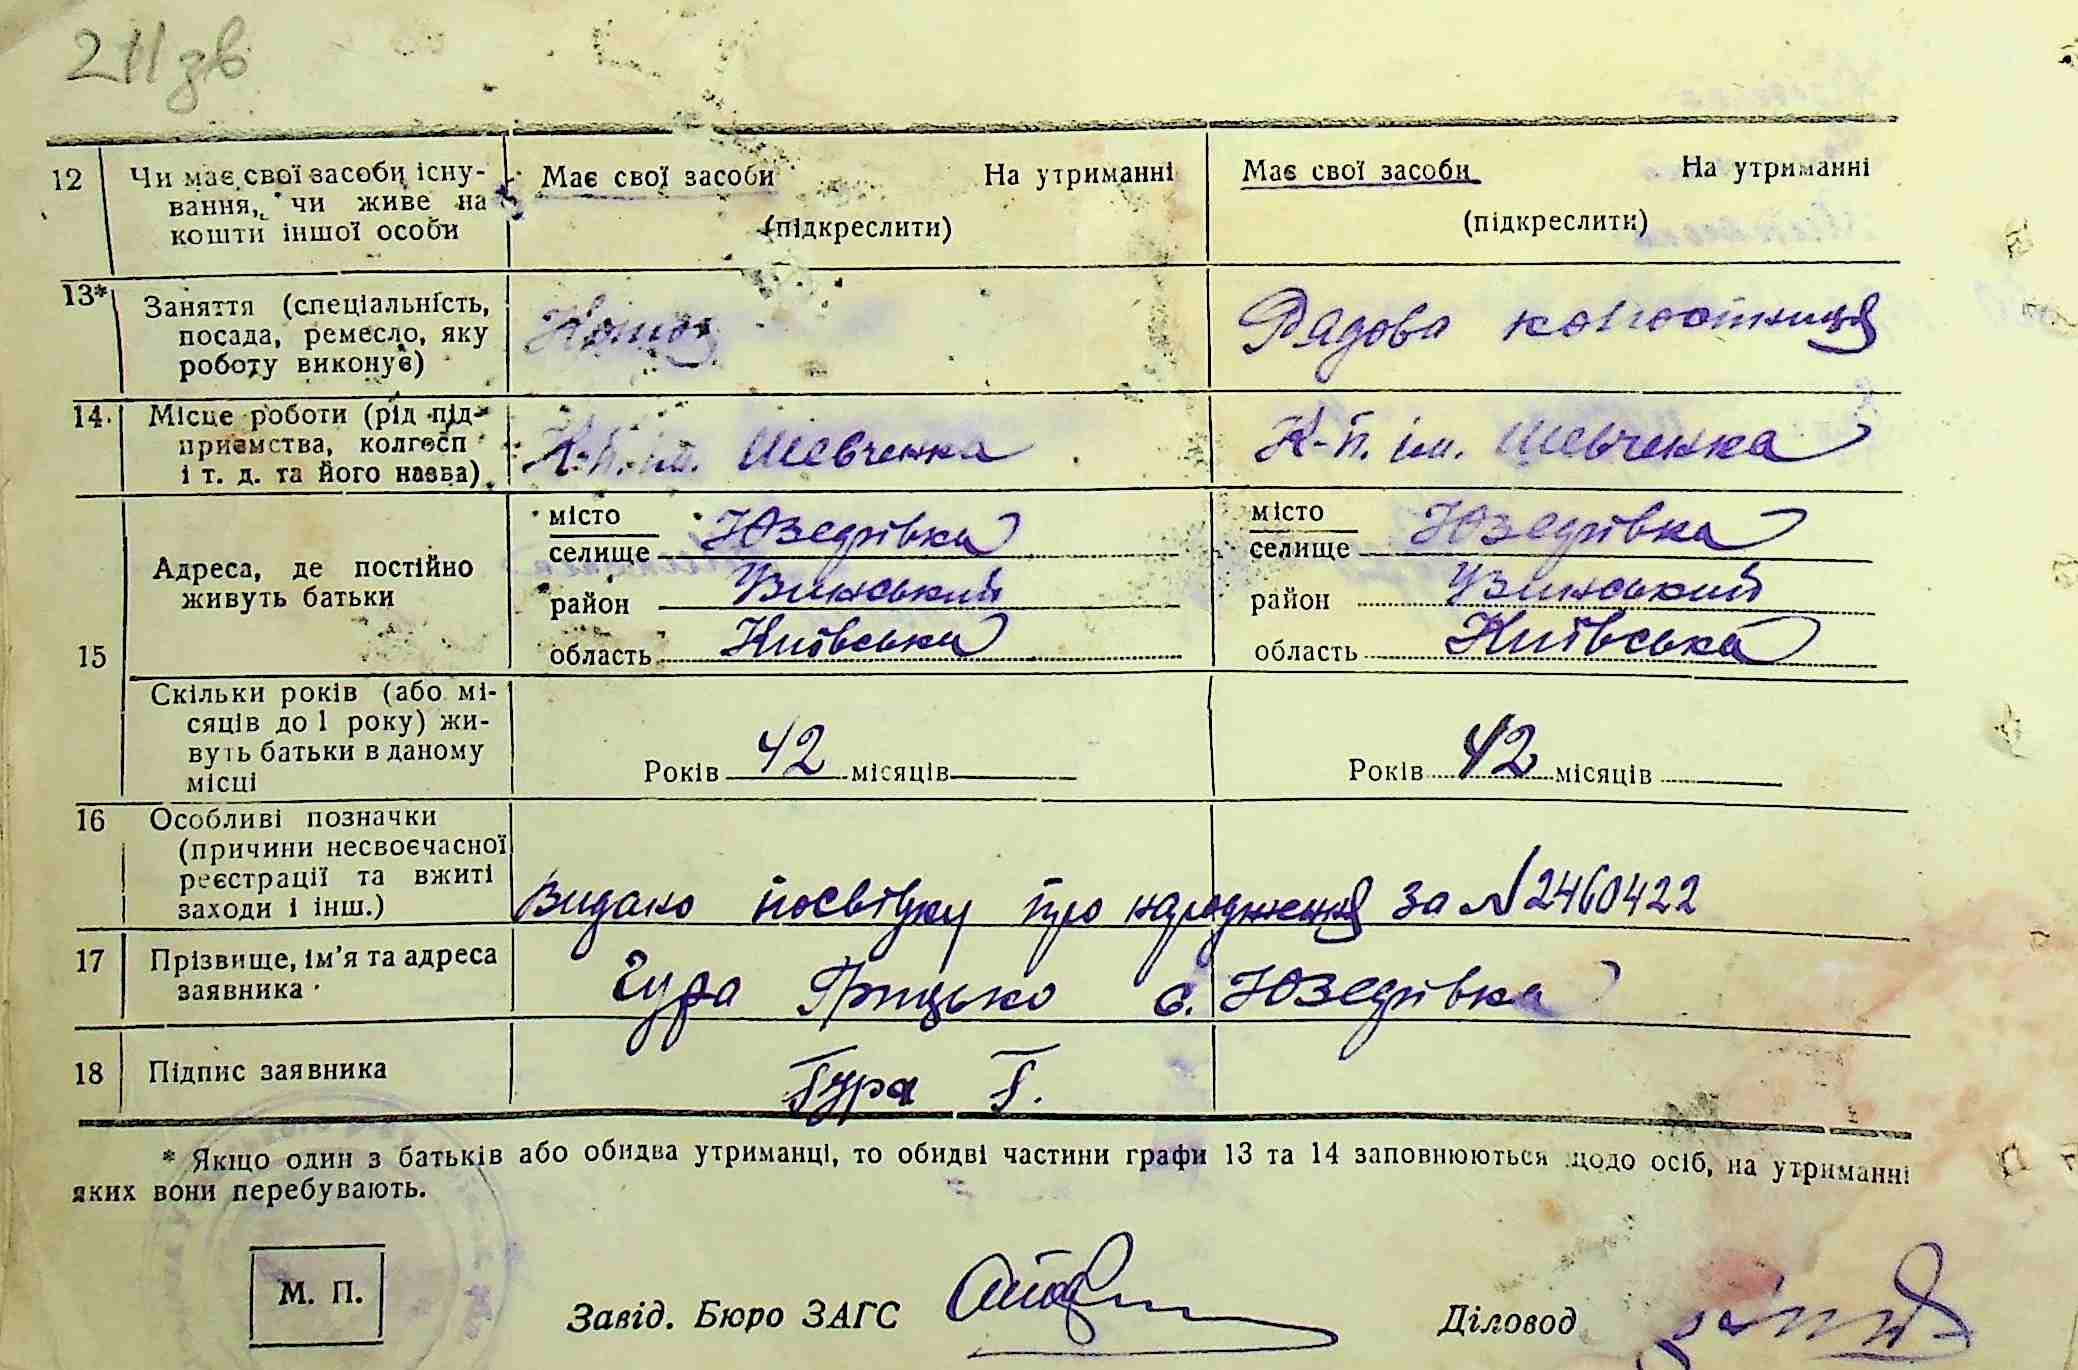 211 зв
12 Чи має свої засоби існу- Має свої засоби На утриманні Має свої засоби На утриманні
вання, чи живе на (підкреслити) (підкреслити)
кошти іншої особи
13* Заняття (спеціальність, Рядова колгоспниця
посада, ремесло, яку
роботу виконує)
14. Місце роботи (рід під- К-п. ім. Шевченка К-п. ім. Шевченка
приємства, колгосп
і т. д. та його назва)
15 Адреса, де постійно
живуть батьки
місто
селище Юзефівка
район Узинський
область Київська
місто
селище Юзефівка
район Узинський
область Київська
Скільки років (або мі-
сяців до 1 року) жи-
вуть батьки в даному
місці
Років 42 місяців
Років 42 місяців
16 Особливі позначки
(причини несвоєчасної
реєстрації та вжиті
заходи і інш.)
Видано посвідку про народження за № 2460422
17 Прізвище, ім'я та адреса
заявника
Гура Грицько с. Юзефівка
18 Підпис заявника Гура Г.
* Якщо один з батьків або обидва утриманці, то обидві частини графи 13 та 14 заповнюються щодо осіб, на утриманні
яких вони перебувають.
М. П.
Завід. Бюро ЗАГС
Діловод